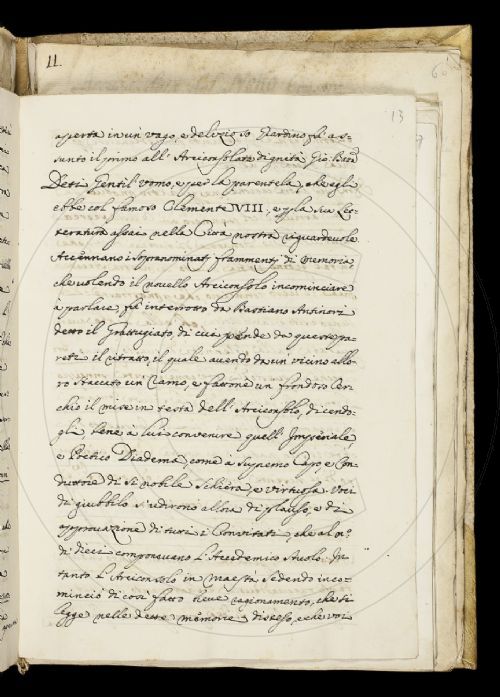 11.
13
aperta in un' vago, e delizioso Giardino fù as-
sunto il primo all' Arciconsolata dignità Gio: Bat̃a
Deti Gentil'uomo, e per la parentela, che egli
ebbe col famoso Clemente VIII, e p la sua let-
teratura assai nella Città nostra riguardevole
Accennano i sopranominati frammenti di memoria,
che volendo il novello Arciconsolo incominciare
à parlare, fù interrotto da Bastiano Antinori
detto il Grattugiato, di cui pende da queste pa-
reti il ritratto, il quale avendo da un' vicino allo-
ro staccato un ramo, e fattone un frondoso Cer-
chio il mise in testa dell' Arciconsolo, dicendo-
gli bene à lui convenire quell' Imperiale,
e Poetico Diadema, come à supremo Capo, e Con-
duttore di sì nobile schiera, e virtuosa. Voci
di giubbilo s'udirono allora di plauso, e di
approvazione di tutti i Convitati, che al n.º
di dieci componevano l'Accademico stuolo. In
tanto l'Arciconsolo in maestà sedendo inco-
minciò di così fatto lieve ragionamento, che si
legge nelle dette memorie disteso, e che voi